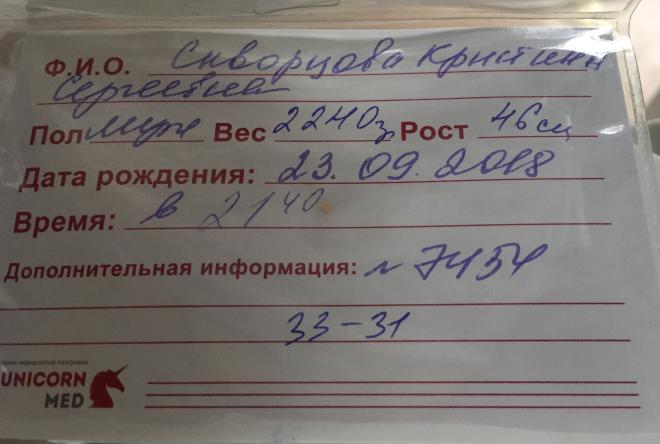 Ф.И.О. Скворцова Кристина
Сергеевна
Пол муж Вес 2240г Рост 46см
Дата рождения: 23.09.2018
Время: в 21 40
Дополнительная информация: № 7454
33-31
UNICORN
MED